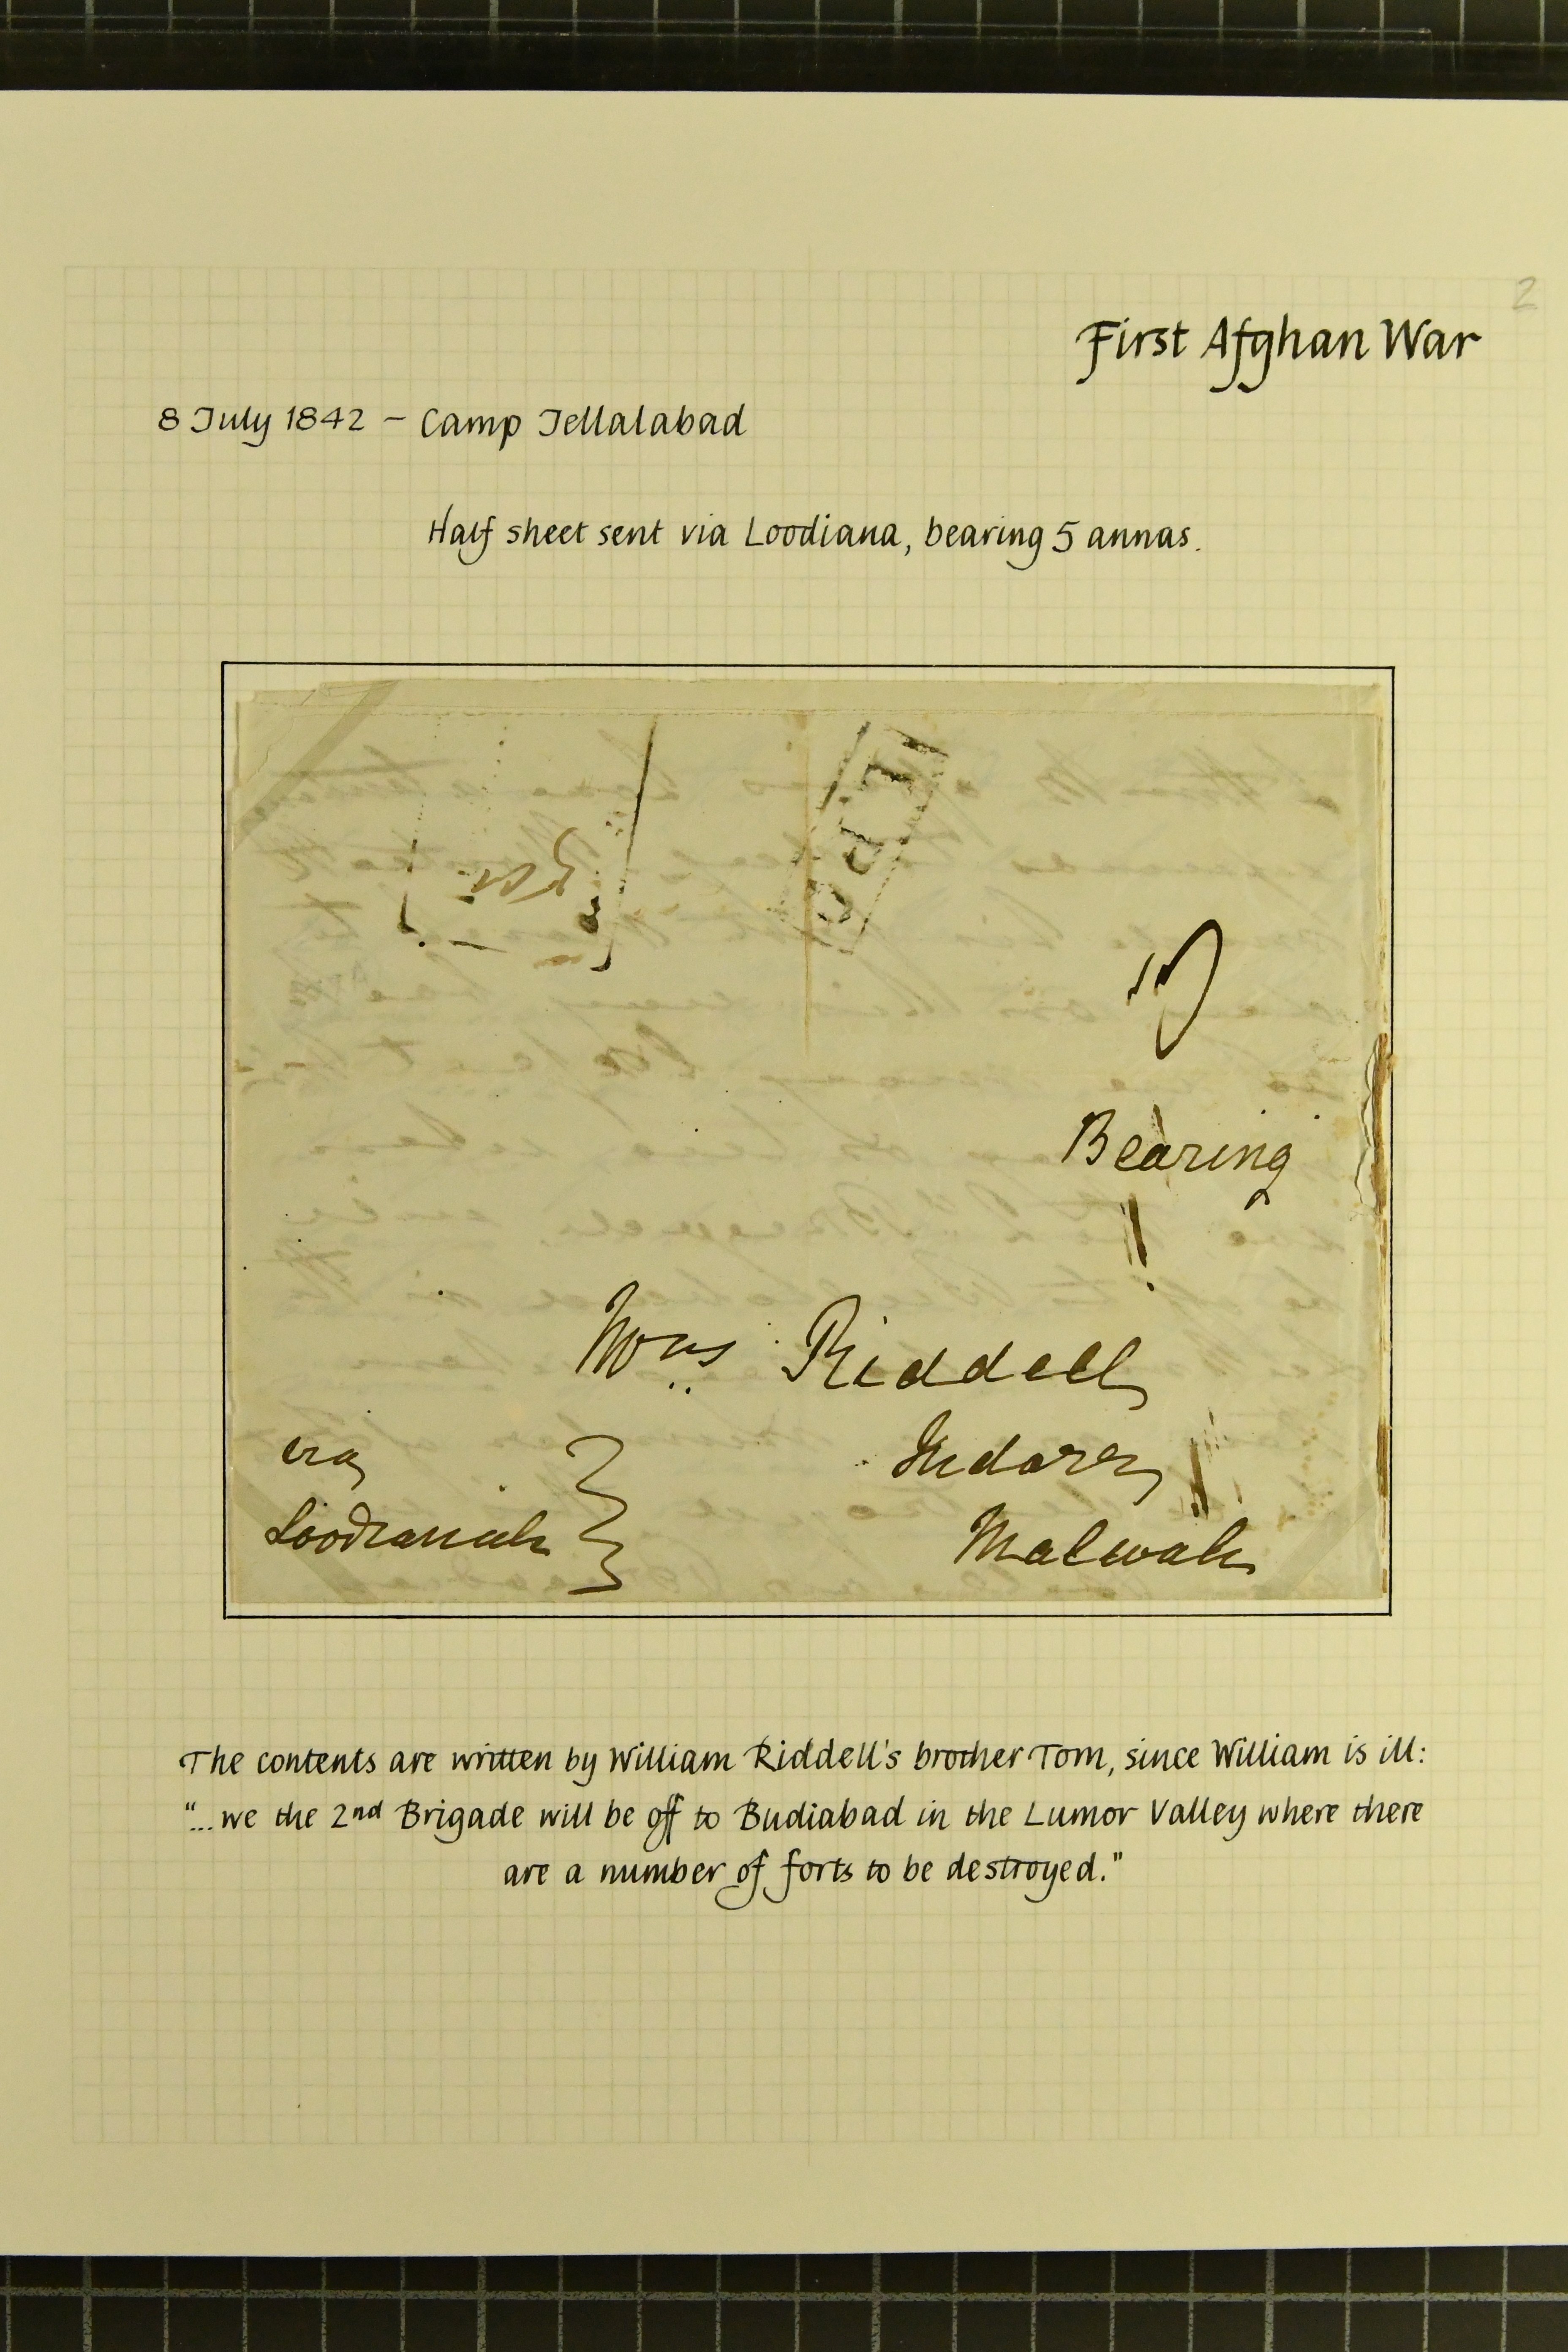 2
First Afghan War
8 July 1842 – Camp Jellalabad
Half sheet sent via Loodiana, bearing 5 annas.
Bearing
Mrs Riddell
via
Loodianah
Indore
Malwah
The contents are written by William Riddell's brother Tom, since William is ill:
"...we the 2nd Brigade will be off to Budiabad in the Lumor Valley where there
are a number of forts to be destroyed."